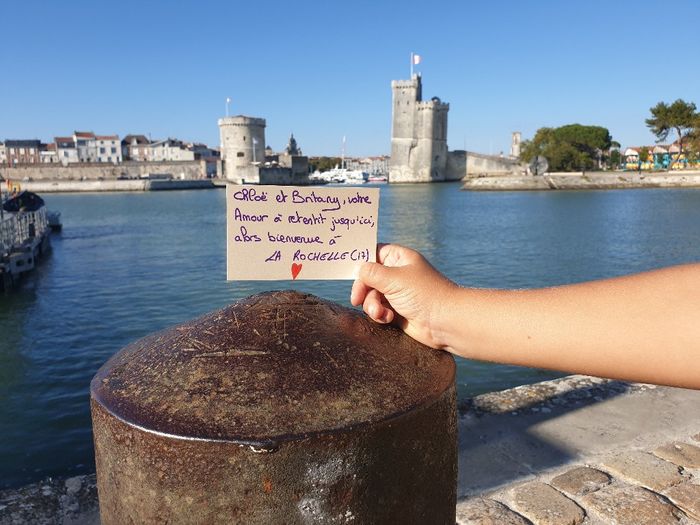 Chloé et Britany, votre
Amour à retentit jusqu'ici,
alors bienvenue à
LA ROCHELLE (17)